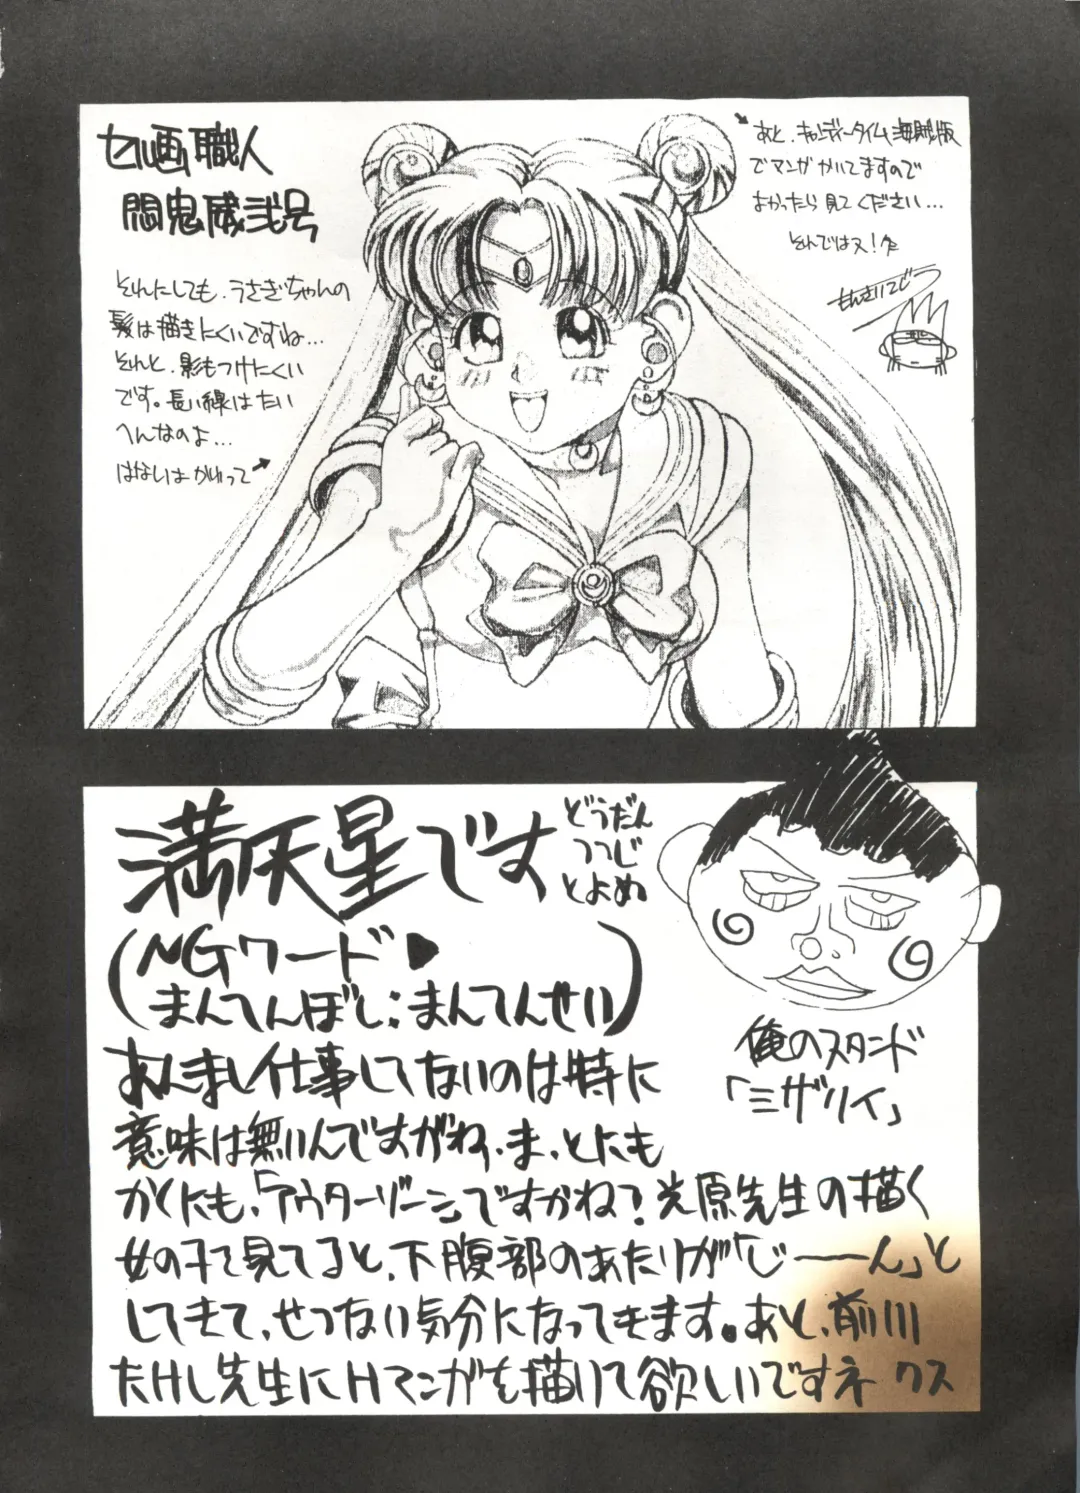 セル画職人
悶鬼威弐号
それにしても、うさぎちゃんの
髪は描きにくいですね…
それと、影もつけにくい
です。長い線はたい
へんなのよ…
はなしはかわって
あと、キャンディータイム海賊版
でマンガかいてますので
よかったら見てください…
それではヌ！
もんきいでした
満天星です
どうだん
つつじ
とよむ
(NGワード♥
まんてんぼし;まんてんせい)
あんまし仕事してないのは特に
意味は無いんですがね、ま、とにも
かくにも、「アウターゾーン」ですかね?光原先生の描く
女の子て見てると、下腹部のあたりが「じーーん」と
してきて、せつない気分になってきます。あと、前川
たけし先生にHマンガを描いて欲しいですネ クス
俺のスタンド
「ミザリィ」